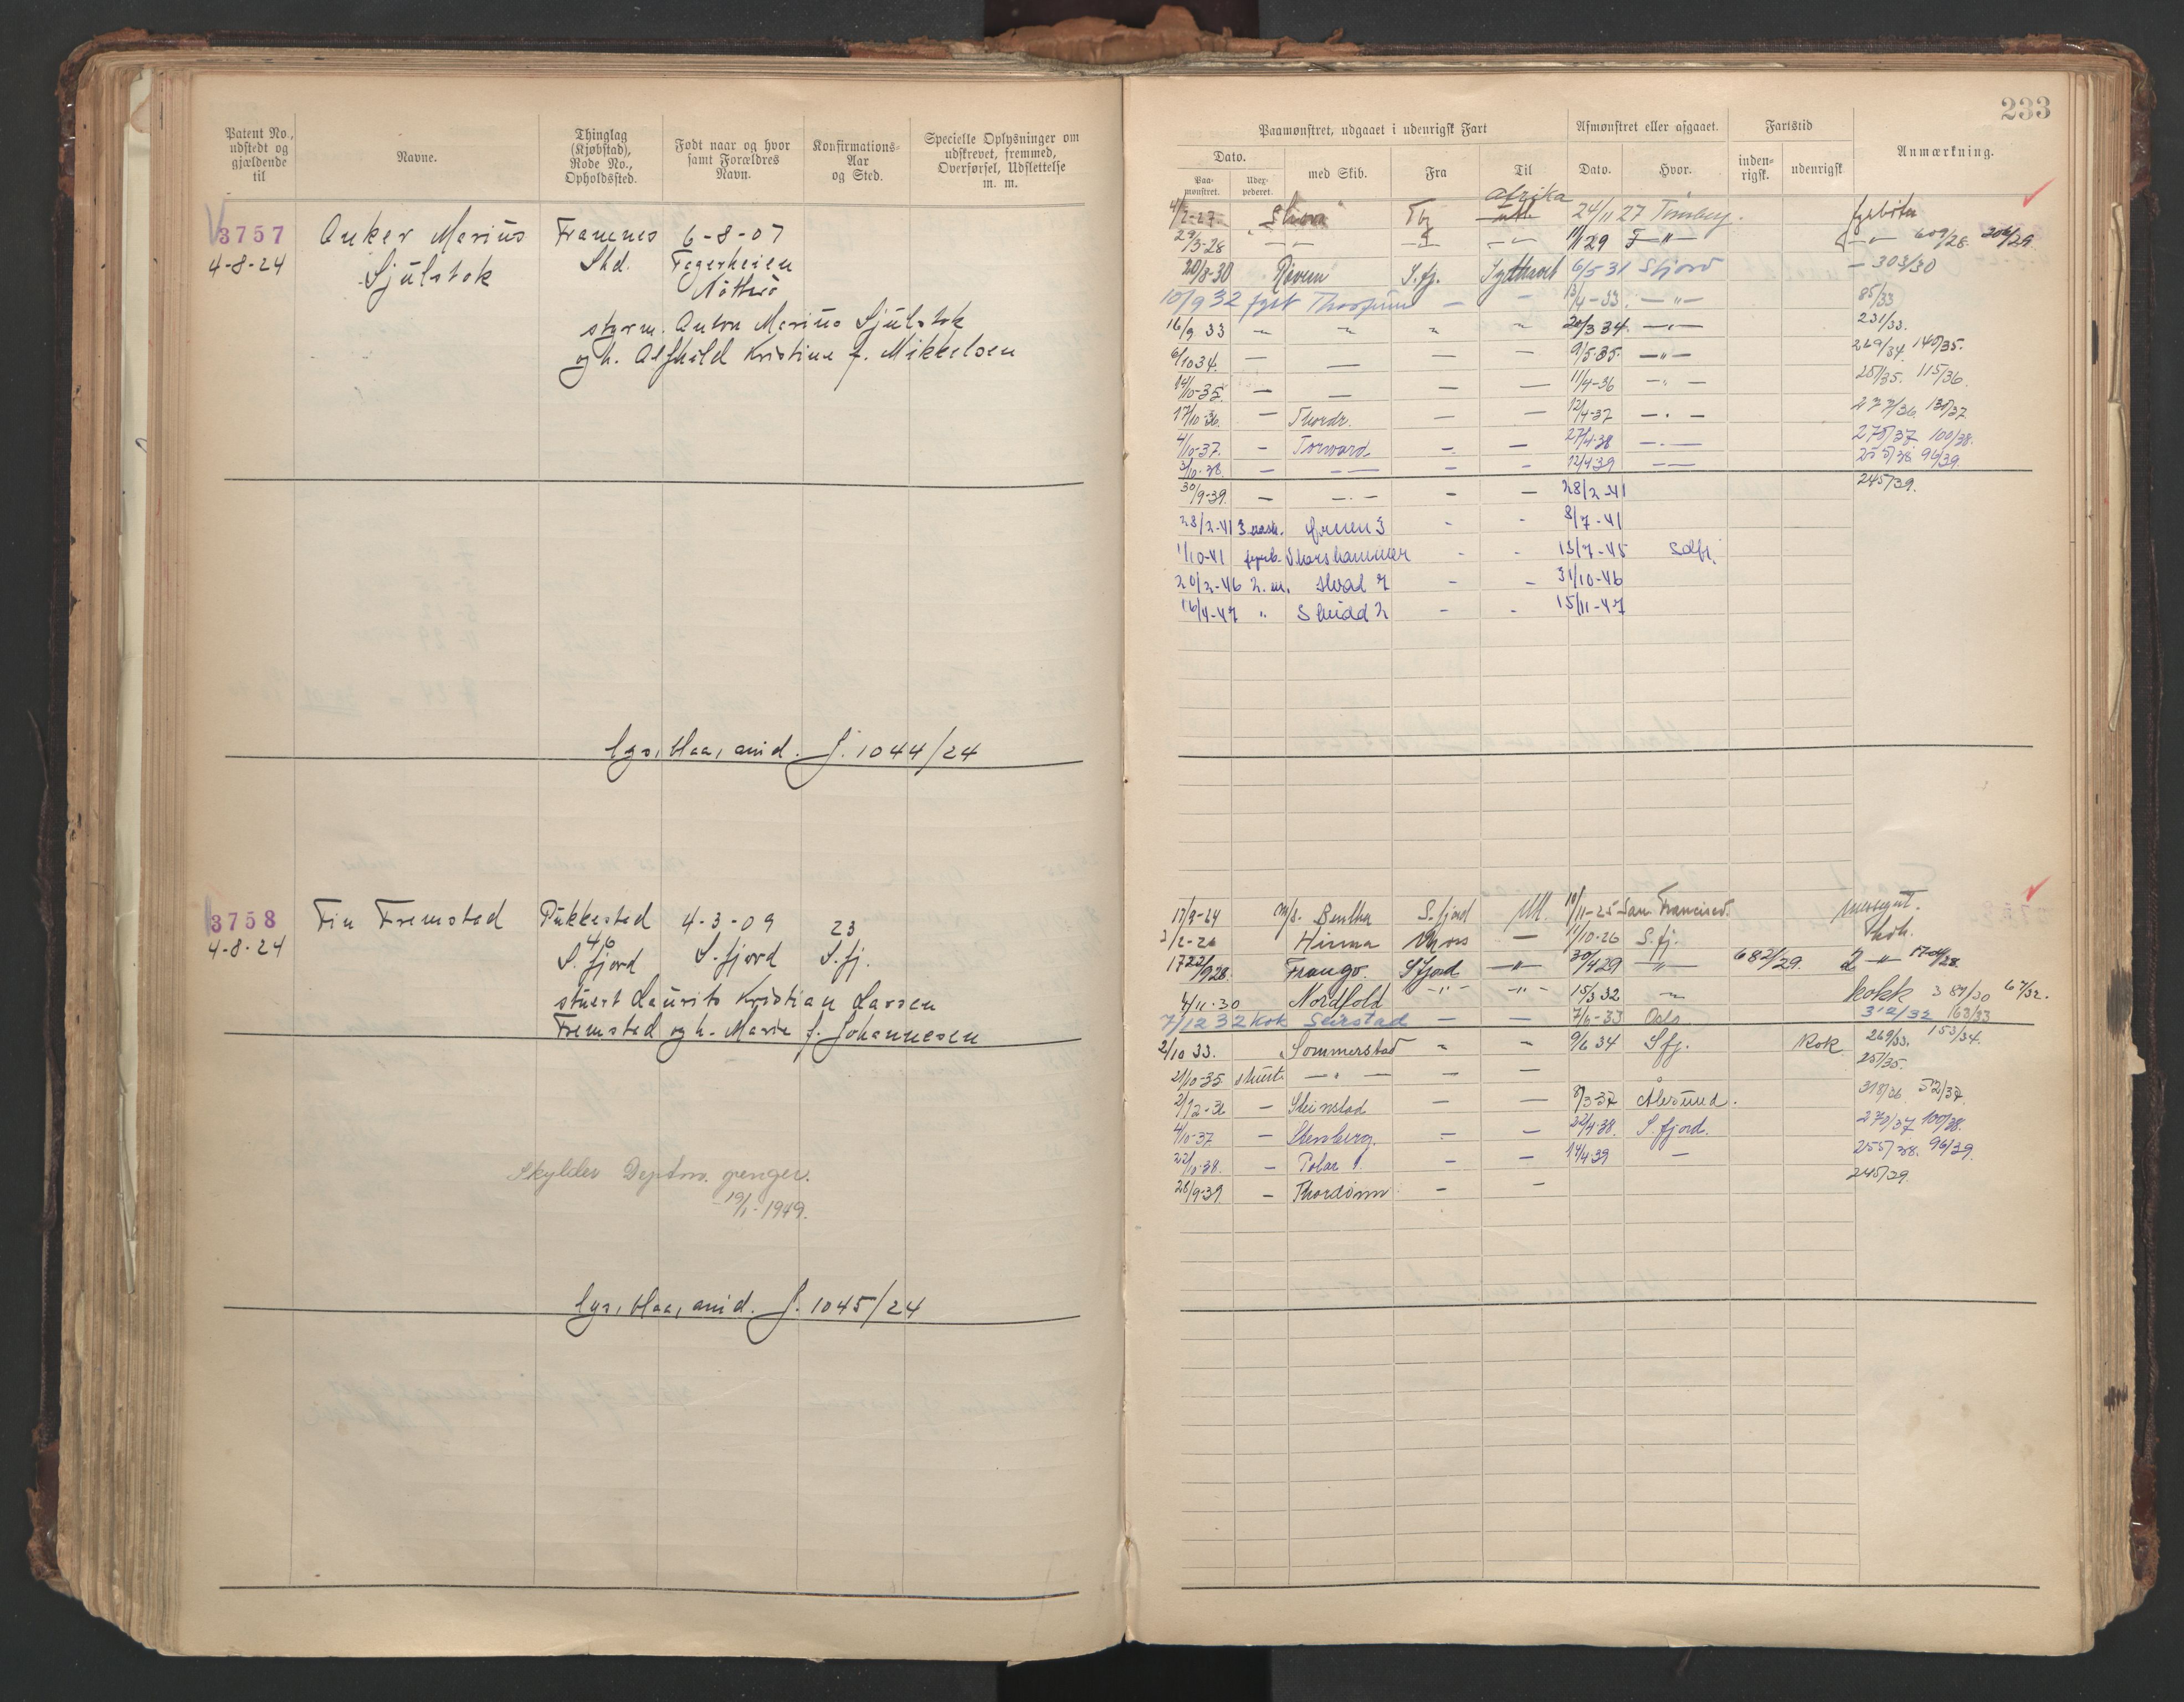 Patent No., udstedt og gjældende til
Navne.
Thinglag (Kjøbstad), Rode No., Opholdssted.
Født naar og hvor samt Forældres Navn.
Konfirmations-Aar og Sted.
Specielle Oplysninger om udskrevet, fremmed, Overførsel, Udslettelse m. m.
3757 Anker Marius Framnes 6-8-07
4-8-24 Sjülstok Shd. Fagerheien
Nøtterö
styrm. Anton Marius Sjülstok
og h. Alfhild Kristine f. Mikkelsen
J. 1044/24
3758 Fin Fremsted Pükkestad 4-3-09 23
4-8-24 46
S. fjord S. fjord S. fj.
stuert Laurits Kristian Larsen
Fremsted og h. Marie f. Johannesen
Skylder Deptm. penger.
19/1-1949.
J. 1045/24
233
Paamønstret, udgaaet i udenrigsk Fart
Afmønstret eller afgaaet.
Fartstid
Anmærkning.
Dato.
med Skib.
Fra
Til
Dato.
Hvor.
inden-rigsk.
udenrigsk
Paa-mønstret.
Udex-pederet.
Afrika
4/2-27 Tbg 24/11 27 Tönsberg. fyrböter
29/3-28 — — 11/1 29 — " — 609/28. 306/29.
20/8-30 Raven S. fj. Sydhavet 6/5 31 Sfjord — 303/30
10/9 32 fyrb — — 13/4-33. — " — 85/33
16/9 33 " " " " 20/3 34. — " — 231/33.
6/10 34. — — — — 9/5-35. — " — 269/34. 140/35.
14/10-35. — — — — 11/4-36 — " — 257/35. 115/36.
17/10-36. — Thordr. — — 12/4-37 — " — 277/36. 130/37
4/10-37. — Torvard — — 27/4-38 — " — 275/37. 100/38.
3/10-38. — — — — 12/4 39 — — 255/38. 96/39.
30/9-39. — — " — — — 28/2-41 245/39.
28/2-41 3 mask. Ørnen 3 - - 8/7-41
1/10-41 fyrb. Thorshammer - - 13/7-45 Sdfj.
20/2-46 2. m. Hval 7 - - 31/10-46
16/4-47 " Skudd 2 - - 15/11-47
17/9-24 m/s. Benthe S. fjord Utl. 10/11-25 San Francisco. messegut.
2/2-26 Hinna Mors — 1/10-26 S. fj. Kok.
22/9 28. Frango. Sfjord — " — 30/4 29 — " — 682/29. — " —
4/11-30 Nordfold — " — — " — 15/3 32 " kokk 387/30 67/32.
7/12 32 Kok Seirstad — — 7/6-33 Oslo 312/32 163/33
2/10 33. Sommerstad " " 9/6 34 S fj. Kok 269/33. 153/34.
2/10-35. stuert — " — — — 257/35.
2/12-36 — Steinstad — — 8/3-37 Ålesund. 318/36. 52/37.
4/10-37 — Stensberg. — — 22/4-38. S. fjord. 270/37 100/38.
22/10-38. — Polar 1. — — 14/4 39 — 255/38. 96/39.
28/9-39 — Thordönn — — 245/39.